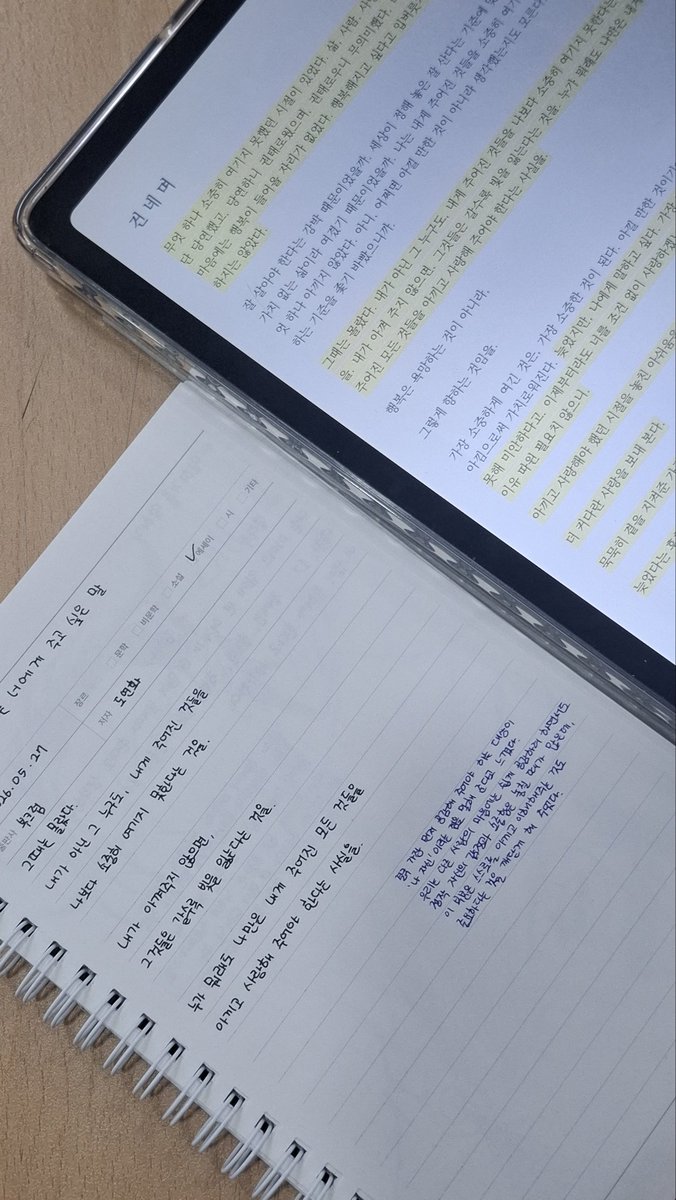 건네며
무엇 하나 소중히 여기지 못했던 시절이 있었다. 삶, 사람, 사
단 당연했고, 당연하니 권태로웠으며, 권태로우니 무의미했다.
마음에는 행복이 들어올 자리가 없었다. 행복해지고 싶다고 입버릇
하지는 않았다.
잘 살아야 한다는 강박 때문이었을까. 세상이 정해 놓은 잘 산다는 기준에 못
가치 없는 삶이라 여겼기 때문이었을까. 나는 내게 주어진 것들을 소중히 여기
엇 하나 아끼지 않았다. 아니, 어쩌면 아낄 만한 것이 아니라 생각했는지도 모른다
하는 기준을 좇기 바빴으니까.
그때는 몰랐다. 내가 아닌 그 누구도, 내게 주어진 것들을 나보다 소중히 여기지 못한다는
을. 내가 아껴 주지 않으면, 그것들은 갈수록 빛을 잃는다는 것을. 누가 뭐래도 나만은 내게
주어진 모든 것들을 아끼고 사랑해 주어야 한다는 사실을.
행복은 욕망하는 것이 아니라,
그렇게 향하는 것임을.
가장 소중하게 여긴 것은, 가장 소중한 것이 된다. 아낄 만한 것이기
아낌으로써 가치로워진다. 늦었지만, 나에게 말하고 싶다. 가장
못해 미안하다고. 이제부터라도 너를 조건 없이 사랑하겠
이유 따윈 필요치 않으니
아끼고 사랑해야 했던 시절을 놓친 아쉬움을
더 커다란 사랑을 보내 본다.
묵묵히 곁을 지켜준
늦었다는
너에게 주고 싶은 말
26.05.27
장르
문학
비문학
소설
✓에세이
시
기타
출판사 부크럼
저자 도연화
그때는 몰랐다.
내가 아닌 그 누구도, 내게 주어진 것들을
나보다 소중히 여기지 못한다는 것을.
내가 아껴주지 않으면,
그것들은 갈수록 빛을 잃는다는 것을.
누가 뭐래도 나만은 내게 주어진 모든 것들을
아끼고 사랑해 주어야 한다는 사실을.
결국 가장 먼저 응원해 주어야 하는 대상이
'나 자신'이라는 것을 말해 준다고 느꼈다.
우리는 다른 사람의 마음에는 쉽게 공감하려 하면서도
정작 자신의 감정과 소중함은 놓칠 때가 많은데,
이 부분은 스스로를 아끼고 이해해주는 것도
중요하다는 것을 깨닫게 해 주었다.